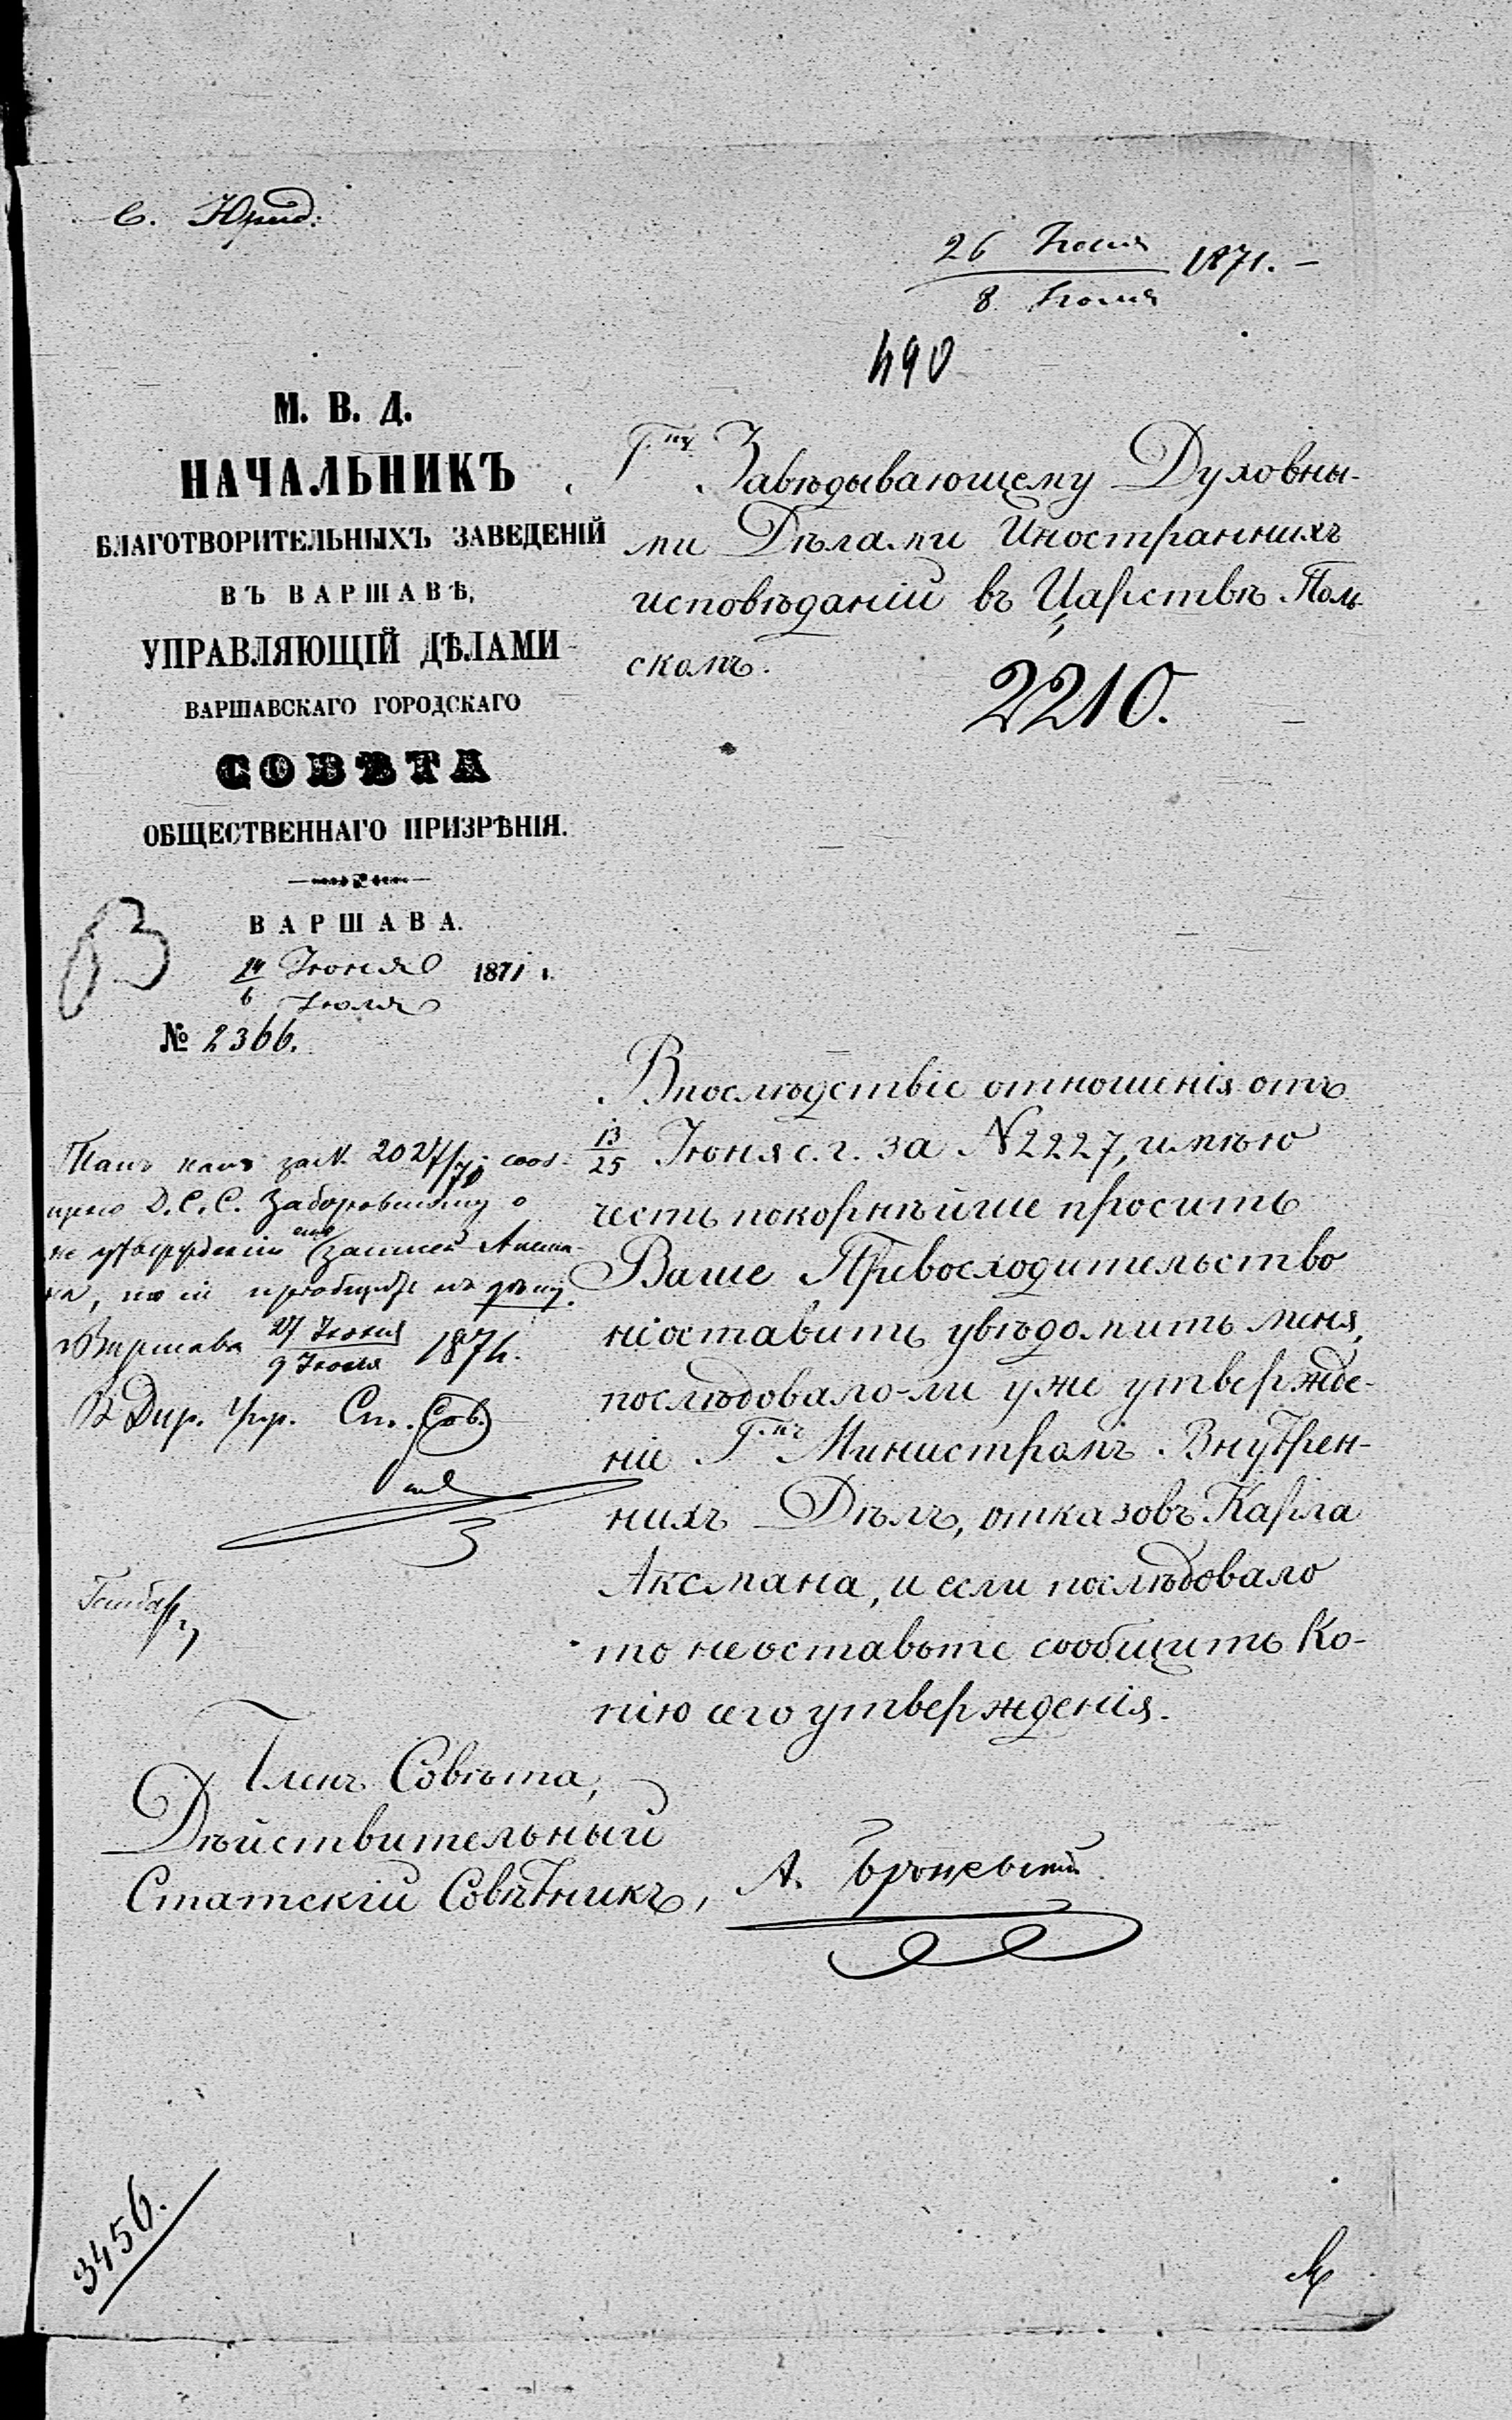 С. Юрид:
26 Іюня
8 Іюля 1871. –
490
М. В. Д.
НАЧАЛЬНИКЪ
БЛАГОТВОРИТЕЛЬНЫХЪ ЗАВЕДЕНІЙ
ВЪ ВАРШАВѢ,
УПРАВЛЯЮЩІЙ ДѢЛАМИ
ВАРШАВСКАГО ГОРОДСКАГО
СОВѢТА
ОБЩЕСТВЕННАГО ПРИЗРѢНІЯ.
ВАРШАВА.
24 Іюня
6 Іюля 1871 г.
№ 2366.
Г.ну Завѣдывающему Духовны-
ми Дѣлами Иностранныхъ
исповѣданій въ Царствѣ Поль-
скомъ.
2210.
Впослѣдствіе отношенія отъ
13/25 Іюня с. г. за N 2227, имѣю
честь покорнѣйше просить
Ваше Превосходительство
неоставить увѣдомить меня,
послѣдовало-ли уже утвержде-
ніе Г.мъ Министромъ Внутрен-
нихъ Дѣлъ, отказовъ Карла
Аксмана, и если послѣдовало
то неоставьте сообщить Ко-
пію сего утвержденія.
Такъ какъ за N. 2027/70 сооб-
щено Д. С. С. Заборовскому о
не утвержденіи записей
г Варшава 27 Іюня
9 Іюля 1871.
В Дир. Упр. Ст. Сов.
Членъ Совѣта,
Дѣйствительный
Статскій Совѣтникъ, А. Броневскій
3456.